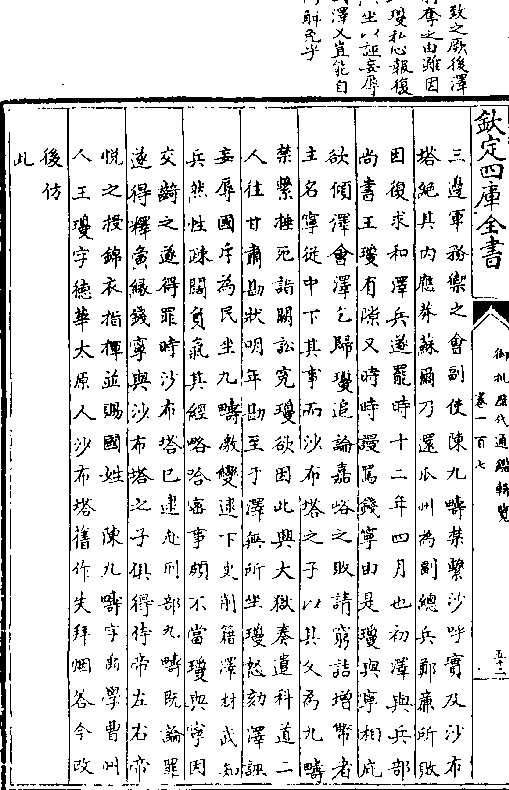 致之厥後澤
奪之由雖因
瓊私心報復
坐以誣妄辱
澤又豈能自
解免乎
欽定四庫全書
御批歷代通鑑輯覽
卷一百七
五十二
三邊軍務禦之會副使陳九疇禁繫沙呼實及沙布
塔絕其内應莽蘇爾乃還瓜州為副總兵鄭廉所敗
因復求和澤兵遂罷時十二年四月也初澤與兵部
尚書王瓊有隙又時時謾罵錢寧由是瓊與寧相庇
欲傾澤會澤乞歸瓊追論嘉峪之敗請窮詰增幣者
主名寧從中下其事而沙布塔之子以其父為九疇
禁繫捶死詣闕訟寃瓊欲因此興大獄奏遣科道二
人往甘肅勘狀明年勘至于澤無所坐瓊怒劾澤誣
妄辱國斥為民坐九疇激變逮下吏削籍澤材武知
兵然性疎闊負氣其經略哈密事頗不當瓊與寧因
交齮之遂得罪時沙布塔已逮赴刑部九疇既論罪
遂得釋夤緣錢寧與沙布塔之子俱得侍帝左右帝
悅之授錦衣指揮並賜國姓 陳九疇字禹學曹州
人王瓊字德華太原人沙布塔舊作失拜烟答今改
後仿
此